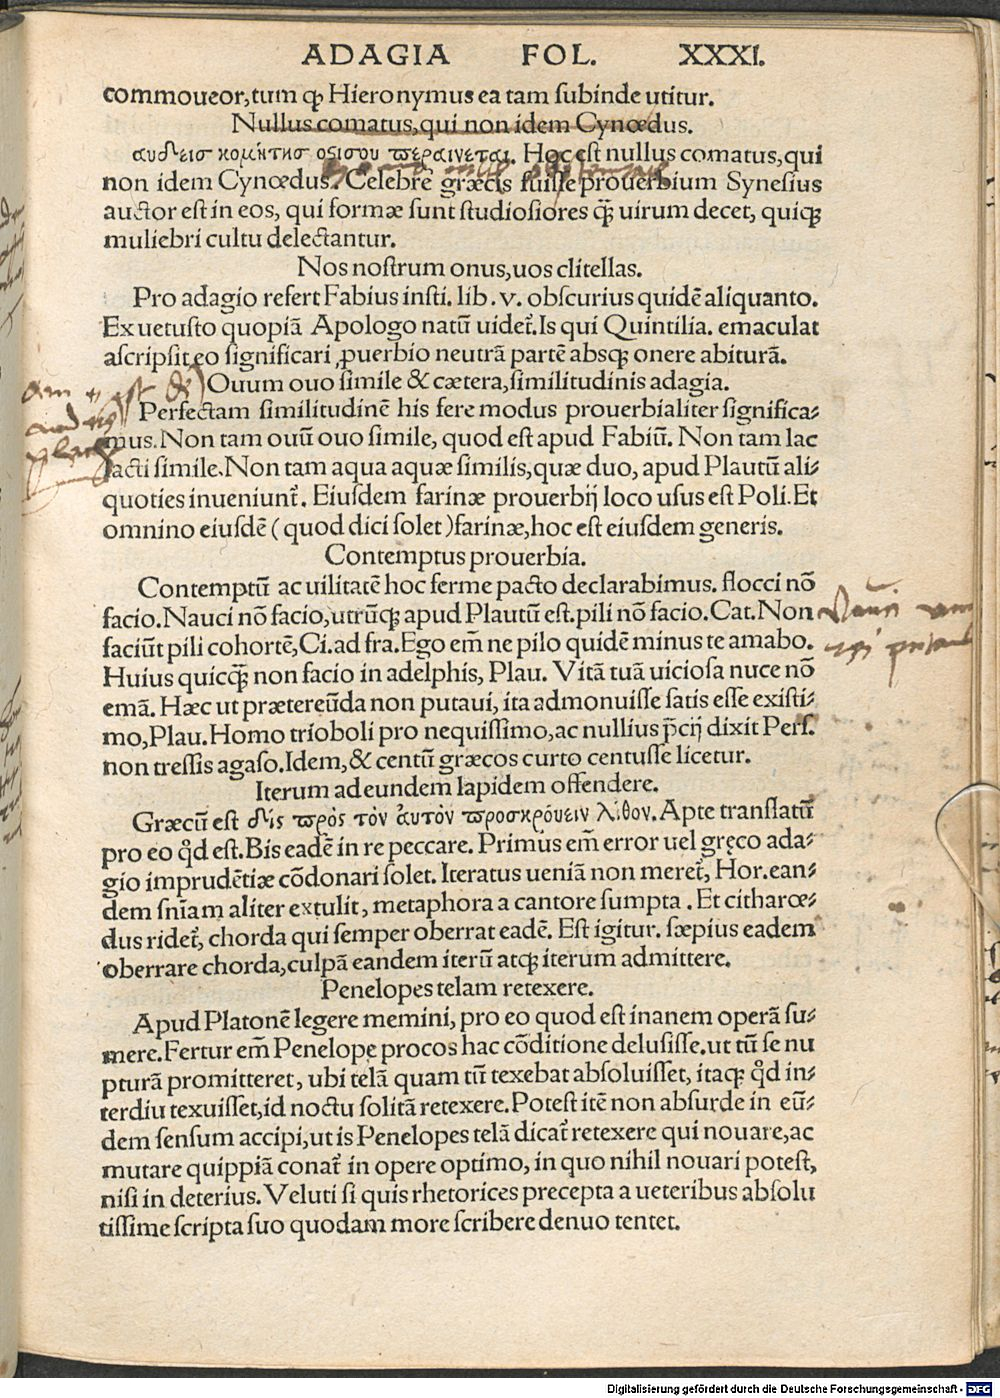 ADAGIA FOL. XXXI.
commoueor, tum qꝫ Hieronymus ea tam subinde utitur.
Nullus comatus, qui non idem Cynœdus.
ουδεισ κομήτησ οσισου περαινεται. Hoc est nullus comatus, qui
non idem Cynœdus. Celebrē græcis fuisse prouerbium Synesius
auctor est in eos, qui formæ sunt studiosiores q̄ꝫ uirum decet, quiqꝫ
muliebri cultu delectantur.
Nos nostrum onus, uos clitellas.
Pro adagio refert Fabius insti. lib. v. obscurius quidē aliquanto.
Ex uetusto quopiā Apologo natū uidet᷑. Is qui Quintilia. emaculat
ascripsit eo significari ꝓuerbio neutrā partē absqꝫ onere abiturā.
Ouum ouo simile & cætera, similitudinis adagia.
Perfectam similitudinē his fere modus prouerbialiter significa⸗
mus. Non tam ouū ouo simile, quod est apud Fabiū. Non tam lac
lacti simile. Non tam aqua aquæ similis, quæ duo, apud Plautū ali⸗
quoties inueniunt᷑. Eiusdem farinæ prouerbij loco usus est Poli. Et
omnino eiusdē (quod dici solet) farinæ, hoc est eiusdem generis.
Contemptus prouerbia.
Contemptū ac uilitatē hoc ferme pacto declarabimus. flocci nō
facio. Nauci nō facio, utrūqꝫ apud Plautū est. pili nō facio. Cat. Non
faciūt pili cohortē, Ci. ad fra. Ego em̄ ne pilo quidē minus te amabo.
Huius quicq̄ꝫ non facio in adelphis, Plau. Vitā tuā uiciosa nuce nō
emā. Hæc ut prætereūda non putaui, ita admonuisse satis esse existi⸗
mo, Plau. Homo trioboli pro nequissimo, ac nullius p̄cij dixit Pers.
non tressis agaso. Idem, & centū græcos curto centusse licetur.
Iterum ad eundem lapidem offendere.
Græcū est δὶς πρὸς τὸν ἀυτὸν προσκρόυειν λίθον. Apte translatū
pro eo qđ est. Bis eadē in re peccare. Primus em̄ error uel gręco ada⸗
gio imprudētiæ cōdonari solet. Iteratus ueniā non meret᷑, Hor. ean⸗
dem sn̄iam aliter extulit, metaphora a cantore sumpta. Et citharœ⸗
dus ridet᷑, chorda qui semper oberrat eadē. Est igitur. sæpius eadem
oberrare chorda, culpā eandem iterū atqꝫ iterum admittere.
Penelopes telam retexere.
Apud Platonē legere memini, pro eo quod est inanem operā su⸗
mere. Fertur em̄ Penelopę procos hac cōditione delusisse. ut tū se nu
pturā promitteret, ubi telā quam tū texebat absoluisset, itaqꝫ qđ in⸗
terdiu texuisset, id noctu solitā retexere. Potest itē non absurde in eū⸗
dem sensum accipi, ut is Penelopes telā dicat᷑ retexere qui nouare, ac
mutare quippiā conat᷑ in opere optimo, in quo nihil nouari potest,
nisi in deterius. Veluti si quis rhetorices precepta a ueteribus absolu
tissime scripta suo quodam more scribere denuo tentet.
Digitalisierung gefördert durch die Deutsche Forschungsgemeinschaft - DFG